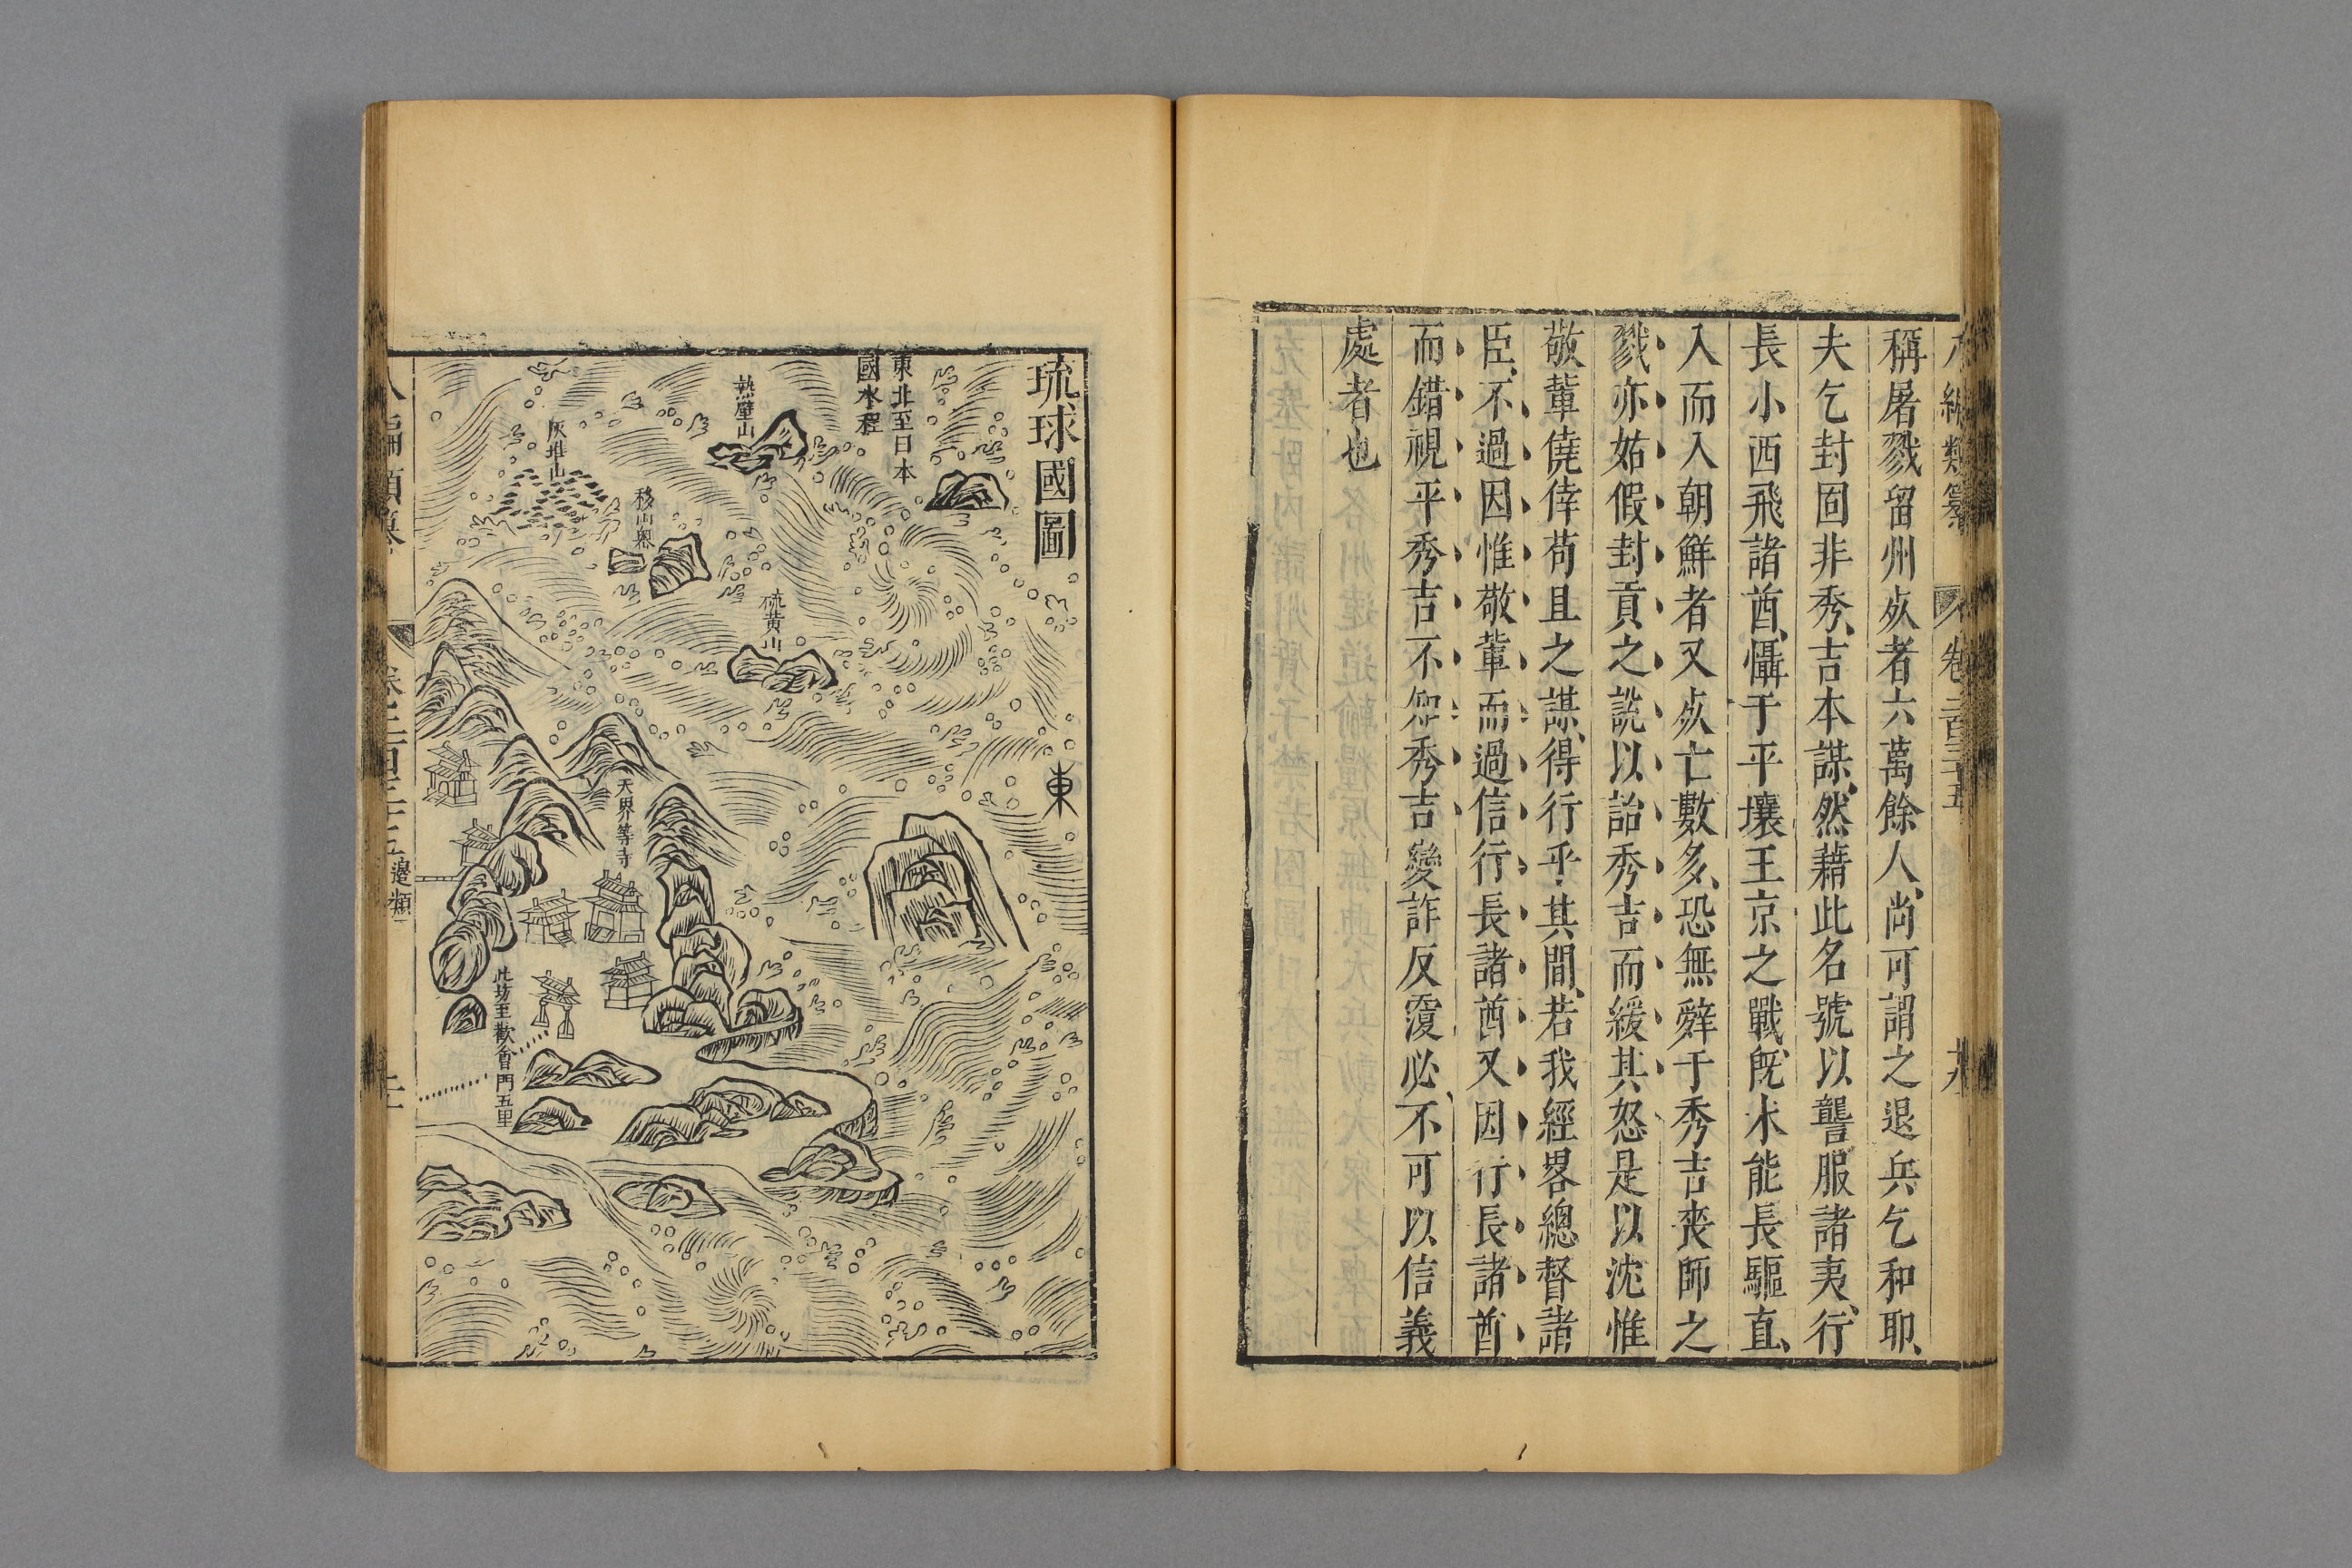 稱屠戮留州歿者六萬餘人尚可謂之退兵乞和耶
夫乞封固非秀吉本謀然藉此名號以讋服諸夷行
長小西飛諸酋懾于平壤王京之戰旣未能長驅直
入而入朝鮮者又歿亡數多恐無辤于秀吉喪師之
戮亦姑假封貢之說以詒秀吉而緩其怒是以沈惟
敬輩僥倖苟且之謀得行乎其間若我經畧總督諸
臣不過因惟敬輩而過信行長諸酋又因行長諸酋
而錯視平秀吉不知秀吉變詐反覆必不可以信義
處者也
琉球國圖
東
東北至日本
國水程
熱壁山
硫黃山
移山奧
灰堆山
天界等寺
此坊至歡會門五里
邊類